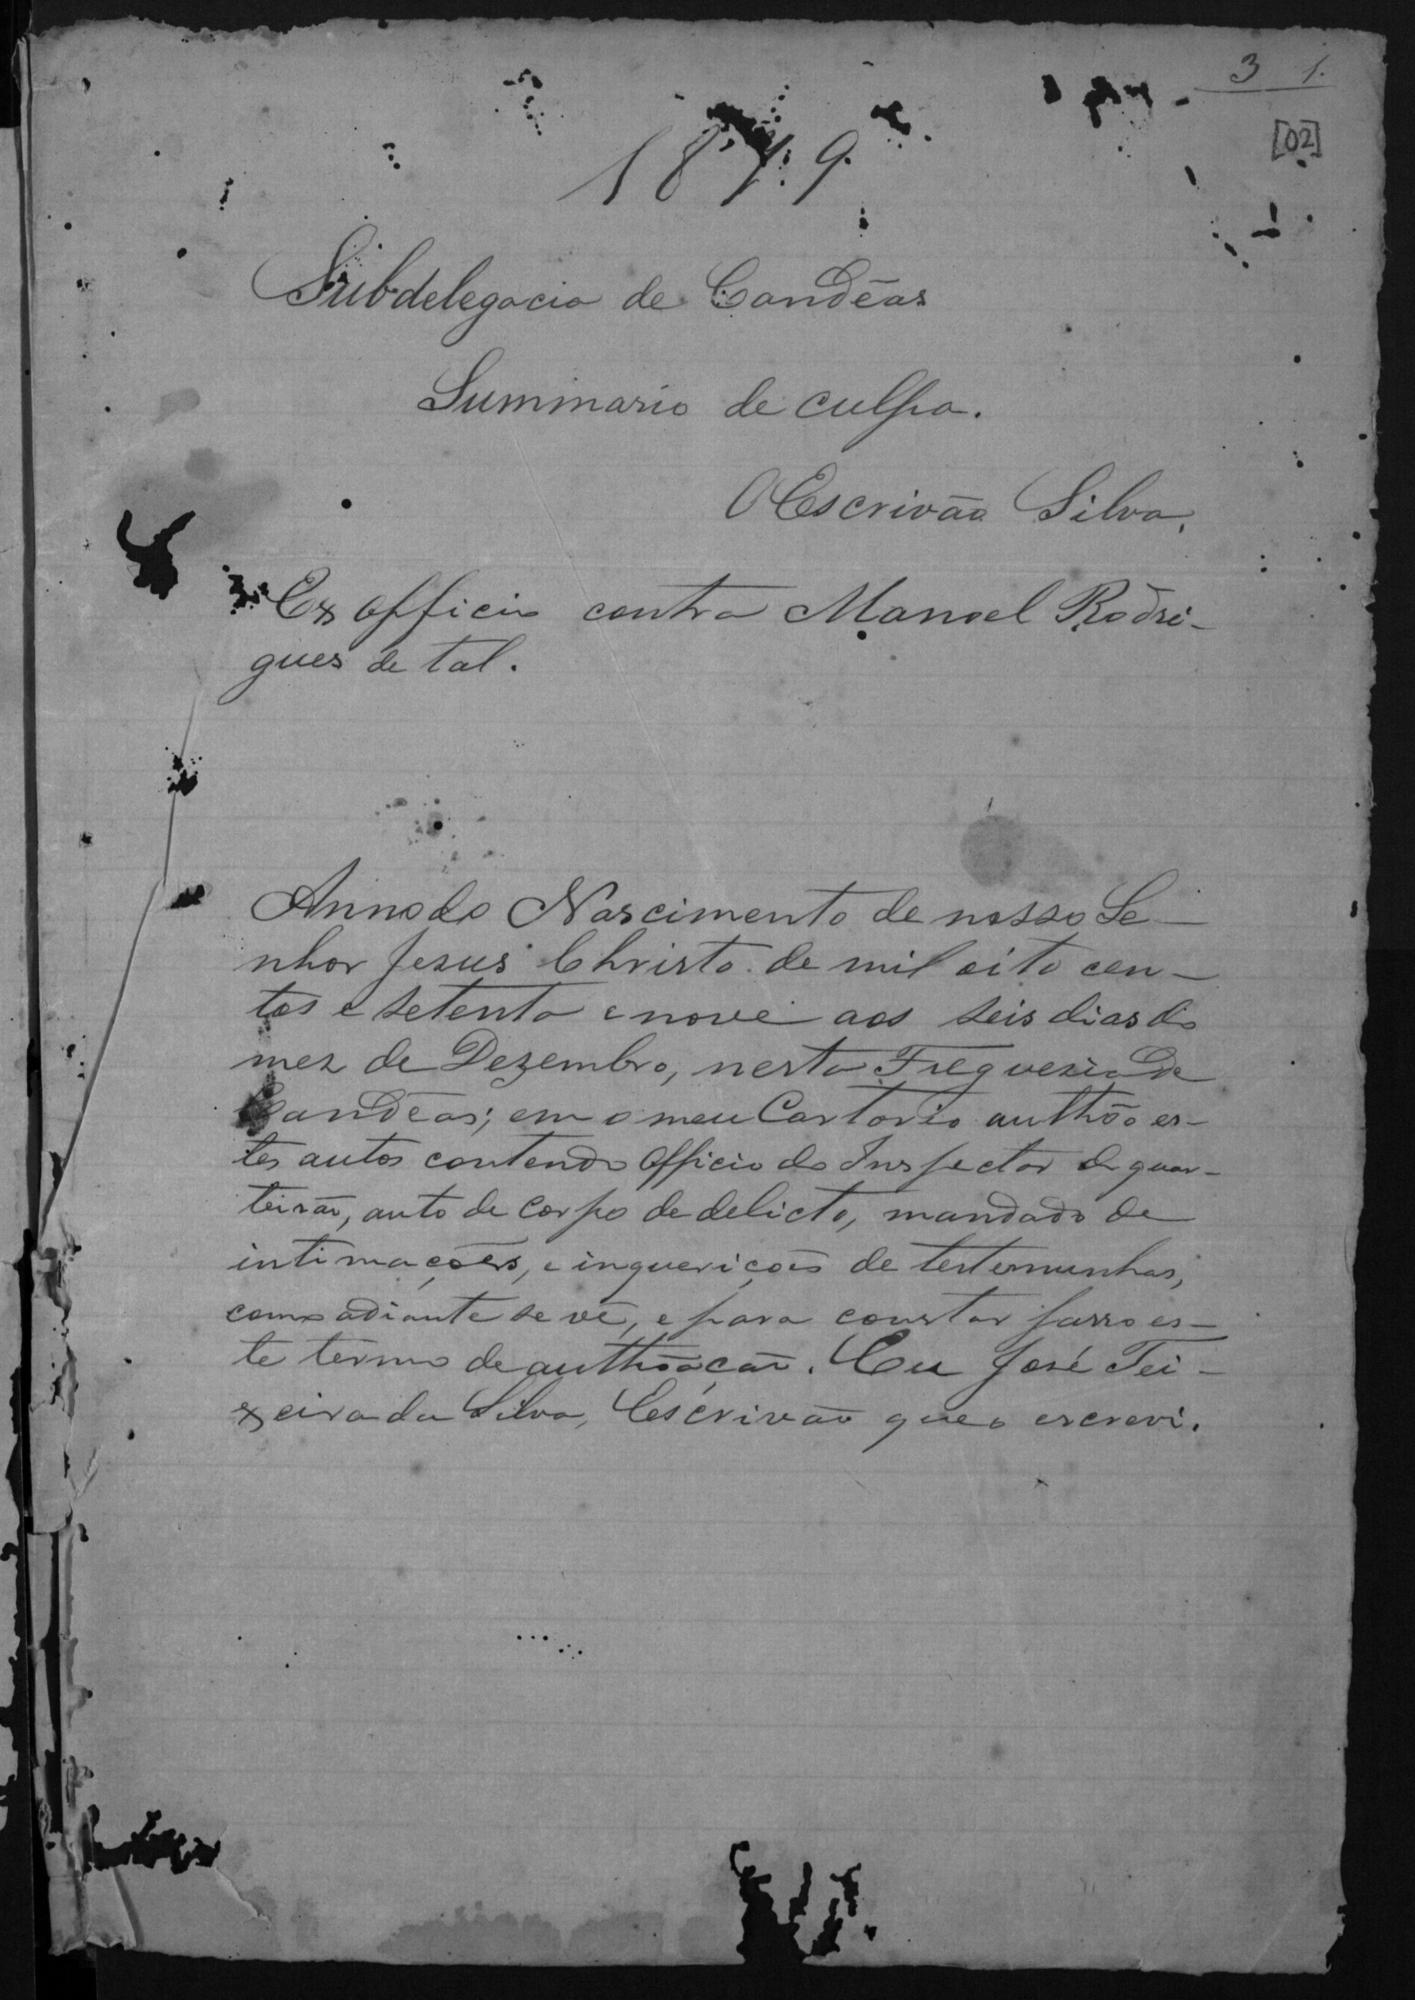 3 1.
[02]
1879.
Subdelegacia de Candêas
Summario de culpa.
O Escrivão Silva,
Ex officio contra Manoel Rodri-
gues de tal.
Anno do Nascimento de nosso Se-
nhor Jesus Christo de mil oito cen-
tos e setenta e nove aos seis dias do
mez de Dezembro, nesta Freguezia de
Candêas; em o meu Cartorio authôo es-
tes autos contendo officio do Inspector de quar-
teirão, auto de corpo de delicto, mandado de
intimações, e inquerições de testemunhas,
como adiante se vê, e para constar passo es-
te termo de authôação. Eu José Tei-
xeira da Silva, Escrivão que o escrevi.